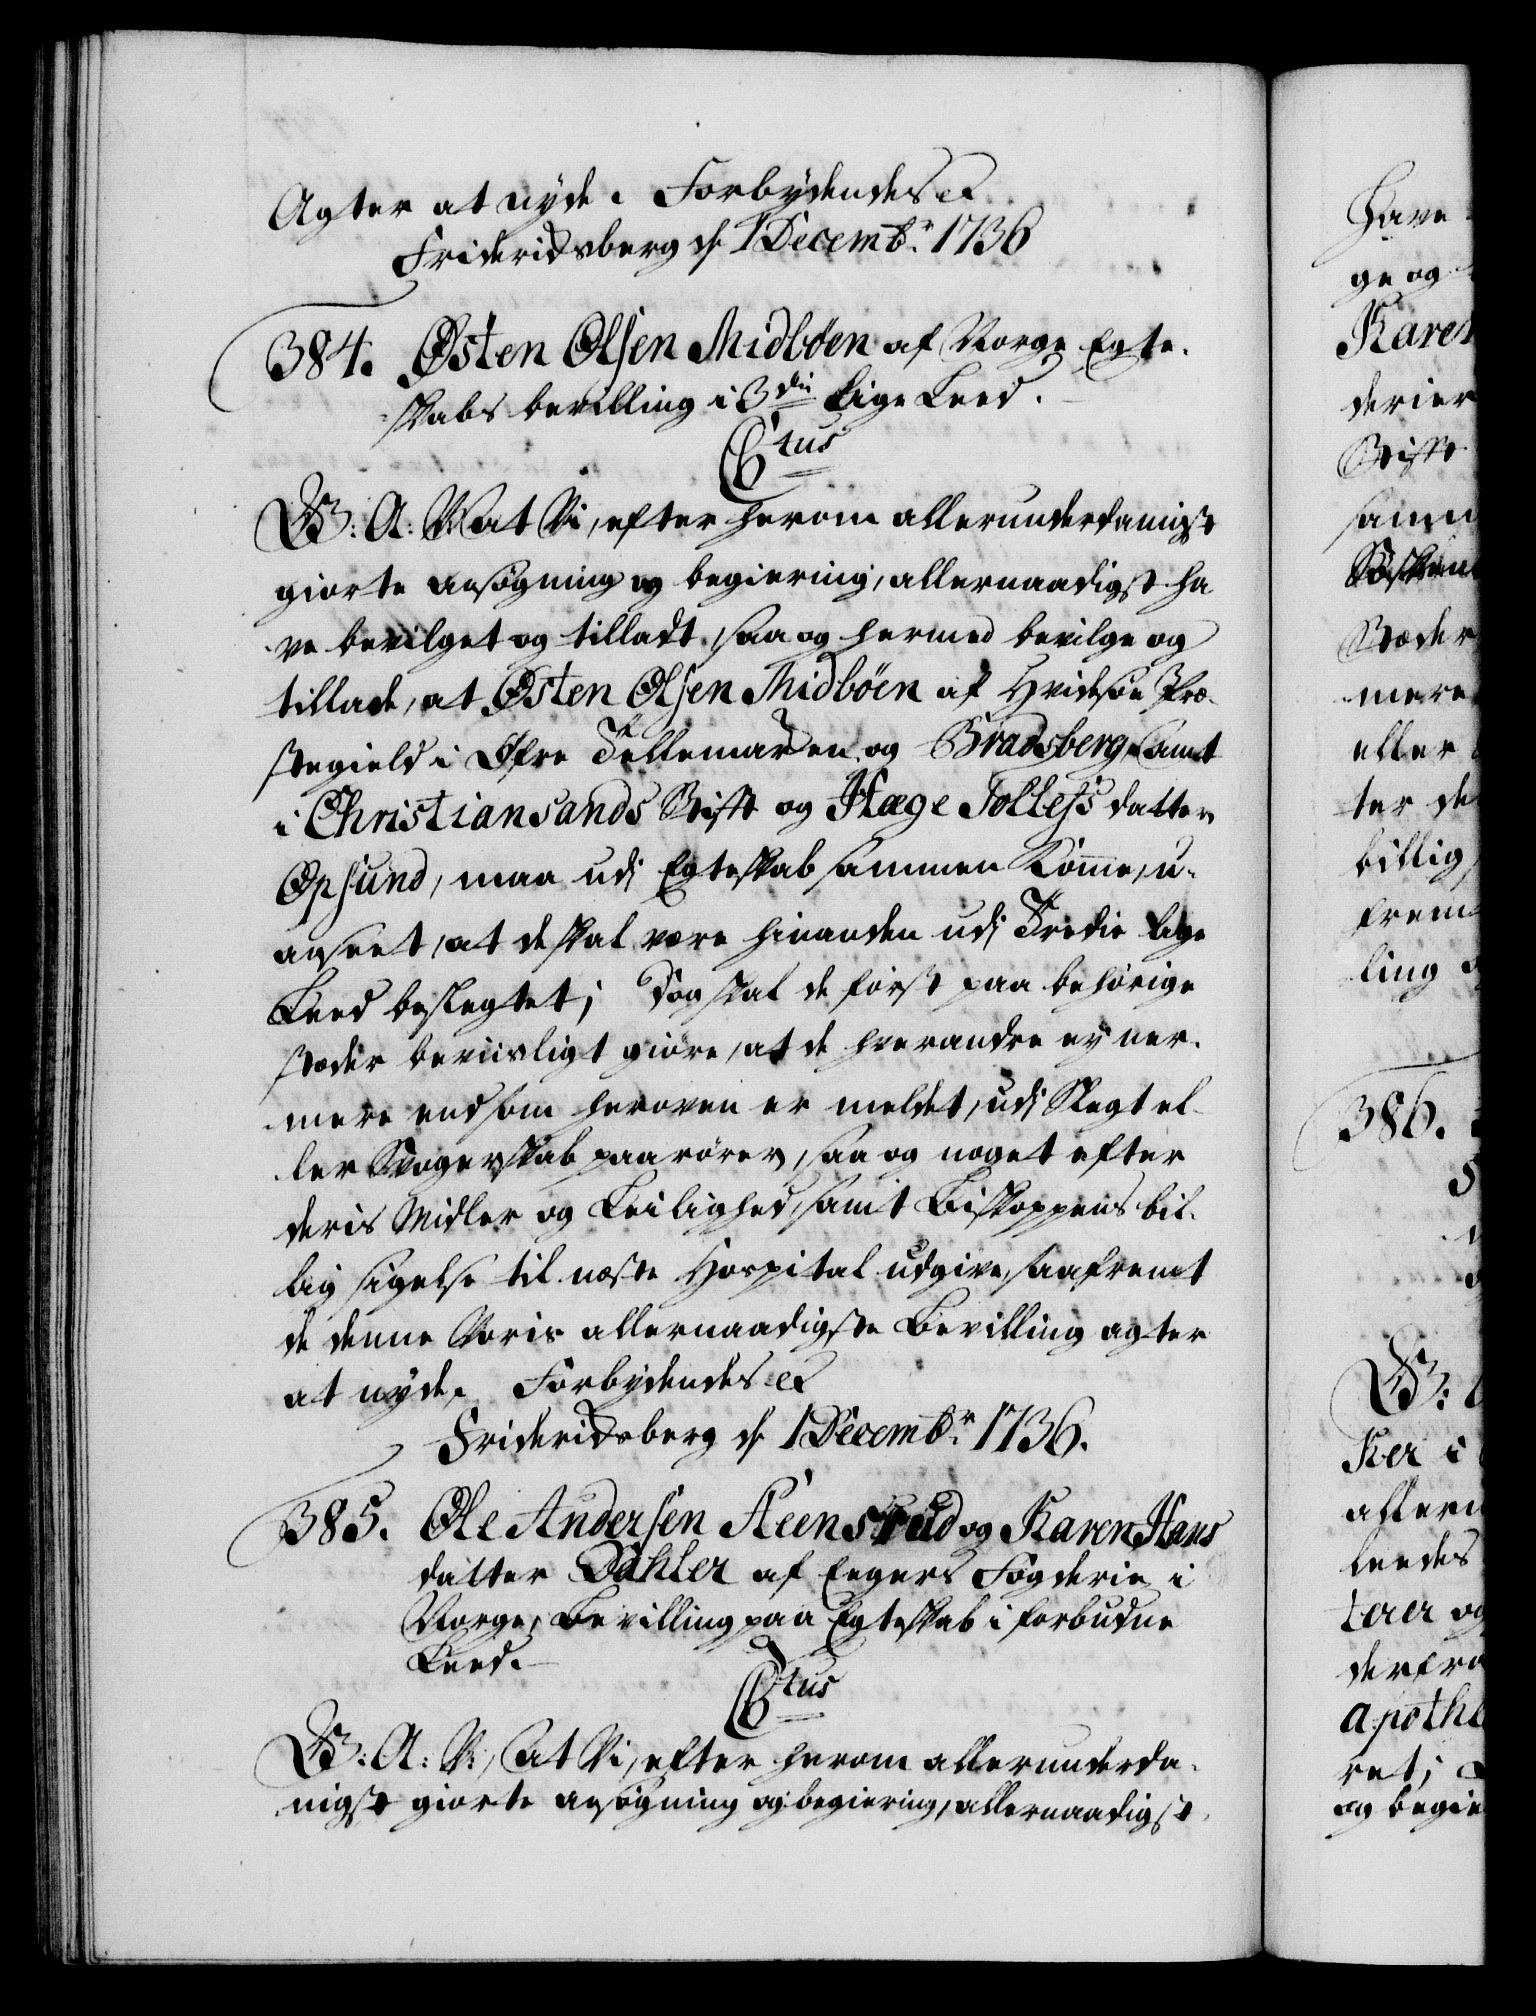 Agter at nyde. Forbydendes etc
Friderichsberg d. 1 Decembr. 1736
384. Østen Olsen Midbøen af Norge Egte-
skabs bevilling i 3die Lige Leed.
Ctus
G: A: V: at Vi, efter herom allerunderdanigst
giorte ansøgning og begiering, allernaadigst ha
ve bevilget og tilladt, saa og hermed bevilge og
tillade, at Østen Olsen Midbøen af Hvidesøe Præ-
stegield i Øfre Tellemarken og Bradsberg Amt
i Christiansands Stift og Hæge Tollefs datter
Opsund, maa udj Egteskab sammen komme, u-
anseet, at de skal være hinanden udj Tredie lige
Leed beslegtet; Dog skal de først paa behørige
stæder beviisligt giøre, at de hverandre ey ner-
mere end som heroven er meldet, udj Slegt el-
ler Svogerskab paarører, saa og noget efter
deris Midler og Leilighed, samt Biskoppens bil-
lig sigelse til næste Hospital udgive, saafremt
de denne Voris allernaadigste Bevilling agter
at nyde. Forbydendes etc
Friderichsberg d. 1 Decembr. 1736.
385. Ole Andersen Steensrud og Karen Hans
datter Dahler af Eegers Fogderie i
Norge, Bevilling paa Egteskab i forbudne
Leed.
Ctus
G: A: V:, at Vi, efter herom allerunderda-
nigst giorte ansøgning og begiering, allernaadigst
have
ge og
Karen
derier
Stift
samm
Stæder
mere
eller
ter de
billig
frem
ling
386.
G:
Ker i
allern
leedes
terer og
derfra
apothe
ret;
og begie